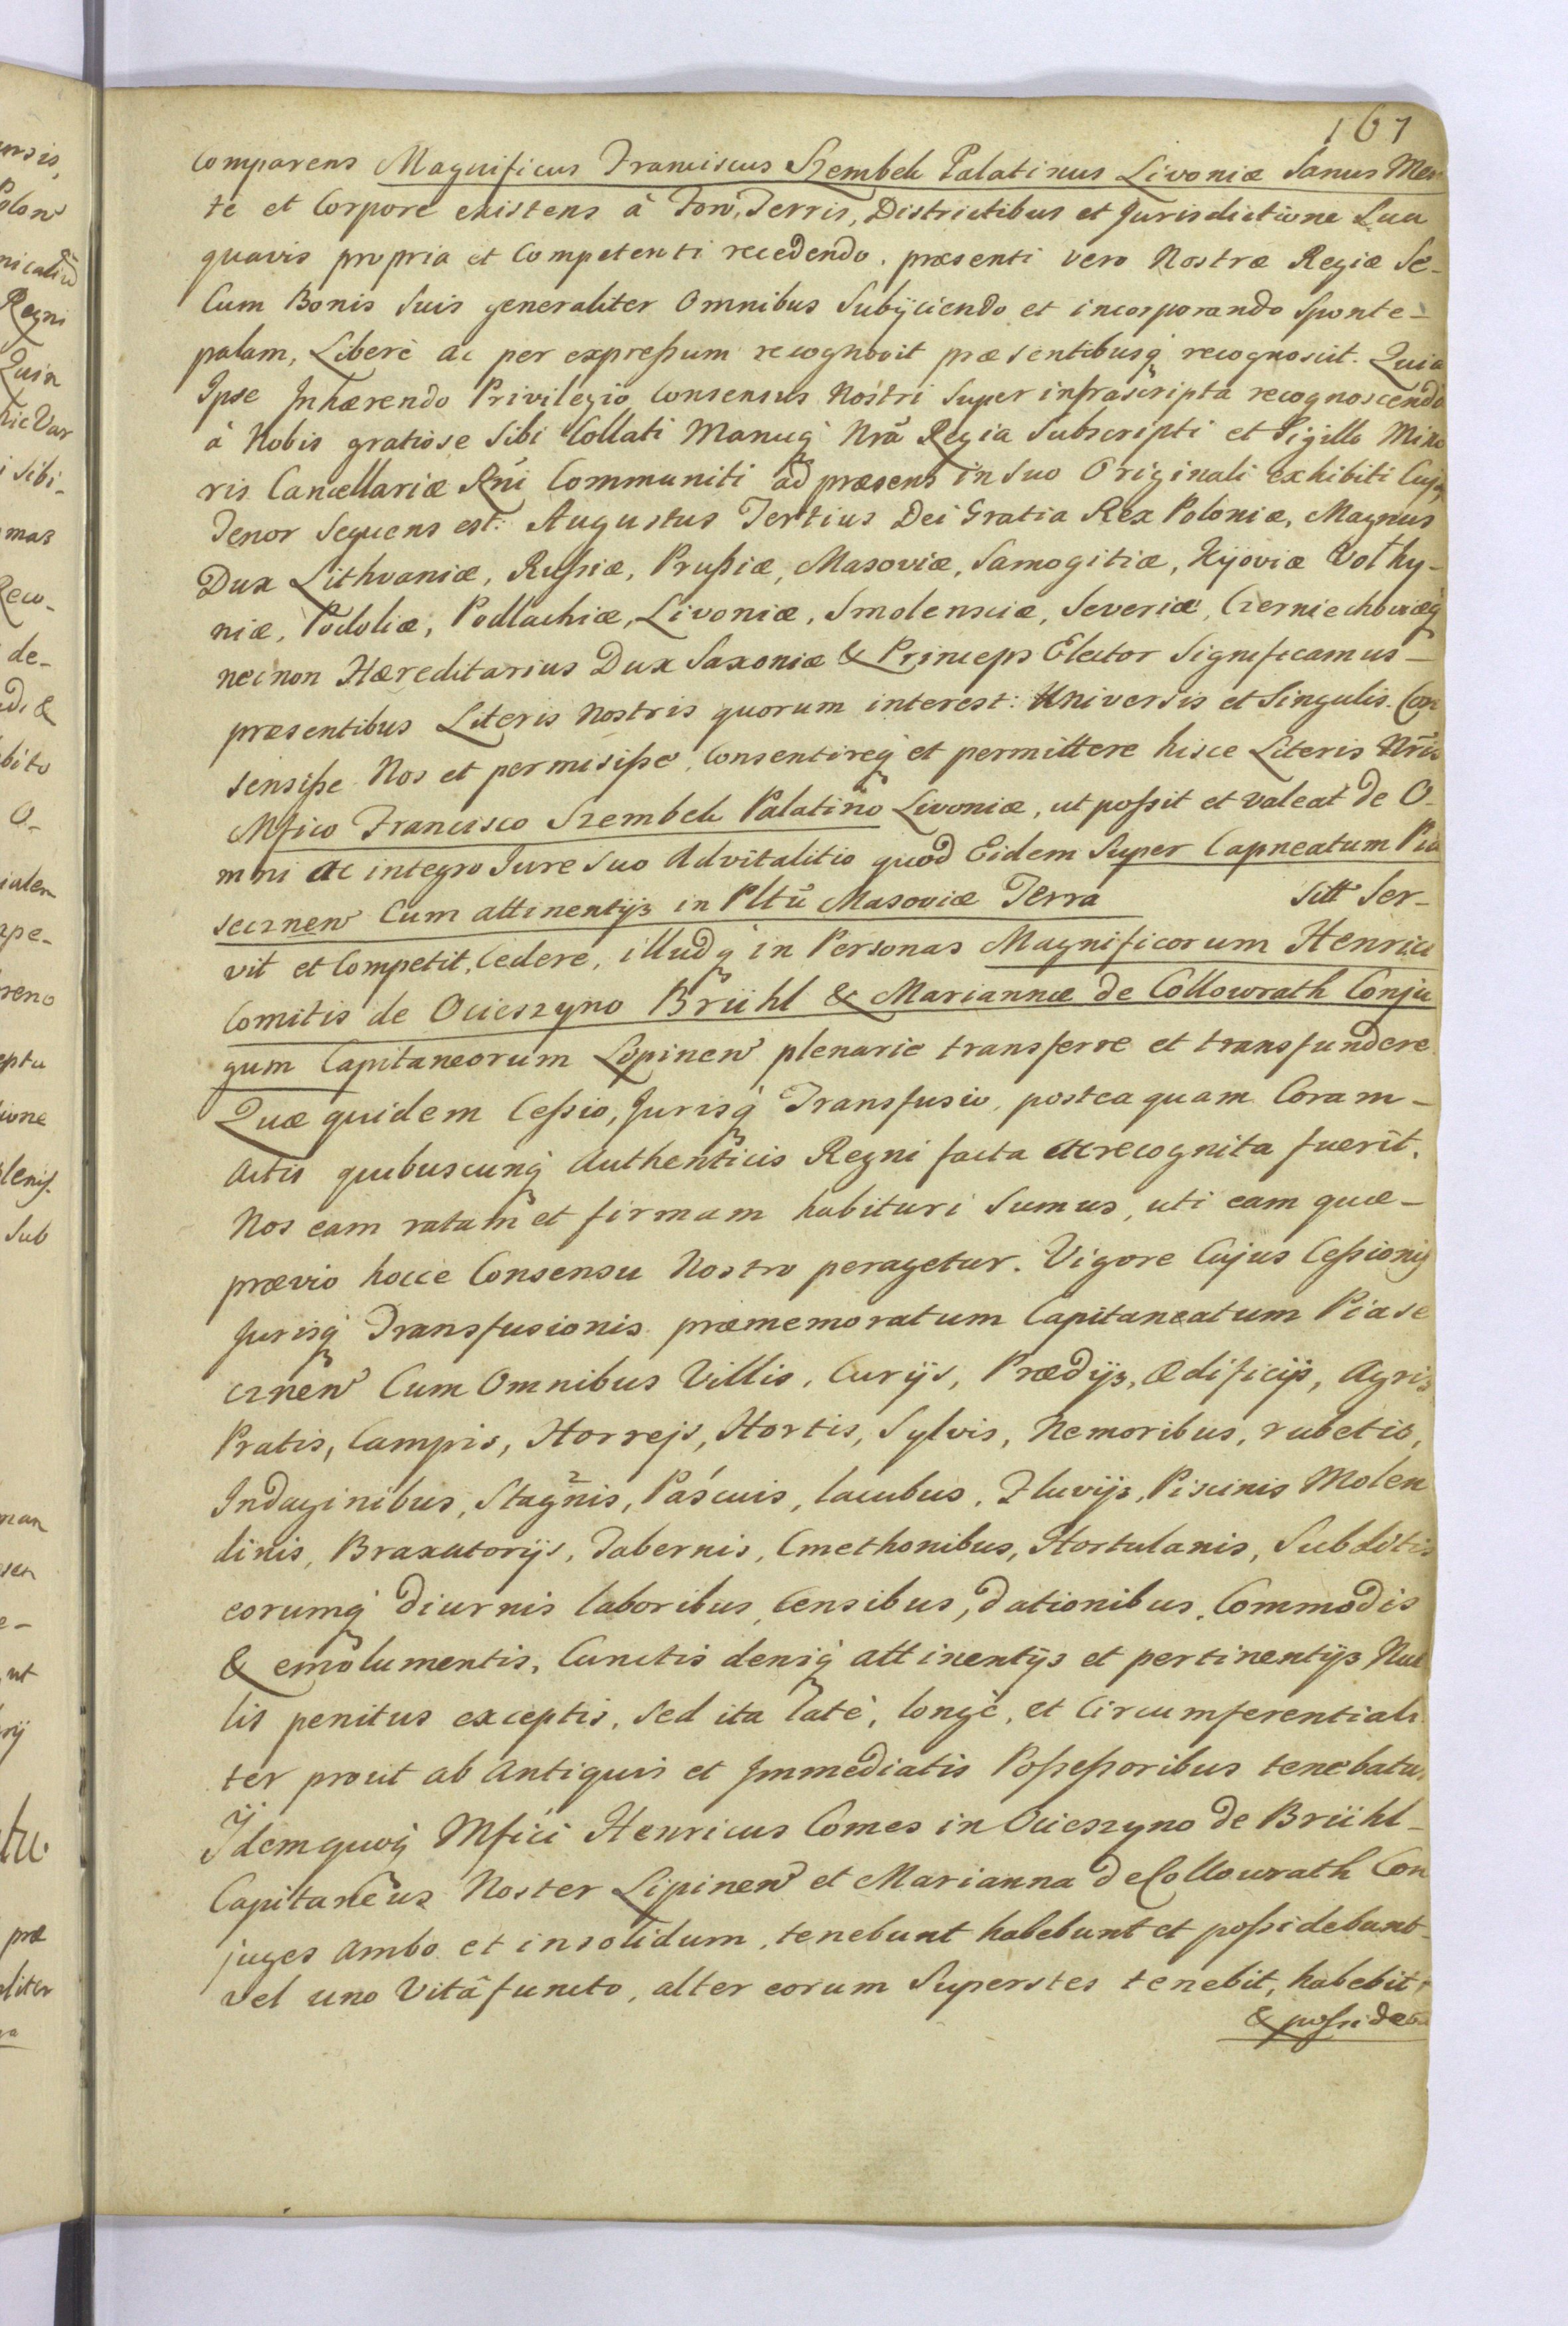 167
Comparens Magnificus Franciscus Szembek Palatinus Livoniæ Sanus Men
te et Corpore existens à Foro, Terris, Districtibus et Jurisdictione Sua
quavis propria et Competenti recedendo, præsenti vero Nostræ Regiæ Se-
Cum Bonis Suis generaliter Omnibus Subÿciendo et incorporando Sponte-
palam, Liberè ac per expreßum recognovit præsentibusq́ recognoscit. Quia
Ipse Inhærendo Privilegio Consensus Nostri Super infrascripta recognoscendo
à Nobis gratiose Sibi Collati Manuq́ Nrã Regia Subscripti et Sigillo Mino
ris Cancellariæ Rni Communiti ad præsens in Suo Originali exhibiti Cujq
Tenor Sequens est: Augustus Tertius Dei Gratia Rex Poloniæ, Magnus
Dux Lithvaniæ, Rußiæ, Prußiæ, Masoviæ, Samogitiæ, Kÿoviæ Volhy-
niæ, Podoliæ, Podlachiæ, Livoniæ, Smolensciæ, Severiæ, Czerniechoviæq́
necnon Hæreditarius Dux Saxoniæ & Princeps Elector Significamus-
præsentibus Literis Nostris quorum interest: Universis et Singulis. Con
sensiße Nos et permisiße, Consentireq́ et permittere hisce Literis Nris
Mfico Francisco Szembek Palatino Livoniæ, ut poßit et valeat de O-
mni ac integro Jure Suo Advitalitio quod Eidem Super Capneatum Pia
secznen Cum attinentÿs in Pltu Masoviæ Terra Sitt Ser-
vit et Competit, Cedere, illudq́ in Personas Magnificorum Henrici
Comitis de Ocieszyno Brühl & Mariannæ de Collowrath Conju
gum Capitaneorum Lipinen plenarie transferre et transfundere
Quæ quidem Ceßio, Jurisq́ Transfusio, posteaquam Coram-
Actis quibuscunq́ Authenticis Regni facta ac recognita fuerit.
Nos eam ratam et firmam habituri Sumus, uti eam quæ-
prævio hocce Consensu Nostro peragetur. Vigore Cujus Ceßionis
Jurisq́ Transfusionis præmemoratum Capitaneatum Piase
cznen Cum Omnibus Villis, Curÿs, Prædÿs, Ædificÿs, Agris
Pratis, Campis, Horrejs, Hortis, Sylvis, Nemoribus, rubetis,
Indaginibus, Stagnis, Pascuis, lacubus, Fluvÿs, Piscinis Molen
dinis, Braxatorÿs, Tabernis, Cmethonibus, Hortulanis, Subditis
eorumq́ diurnis laboribus, Censibus, dationibus, Commodis
& emolumentis, Cunctis deniq́ attinentÿs et pertinentÿs Nul
lis penitus exceptis, Sed ita latè, longè, et Circumferentiali
ter prout ab Antiquis et Immediatis Poßeßoribus tenebatur
Ÿdemquoq́ Mfici Henricus Comes in Ocieszyno de Brühl-
Capitaneus Noster Lipinen et Marianna de Collowrath Con
juges Ambo et in solidum, tenebunt habebunt et poßidebunt-
vel uno Vitâ functo, alter eorum Superstes tenebit, habebit,
& poßideb